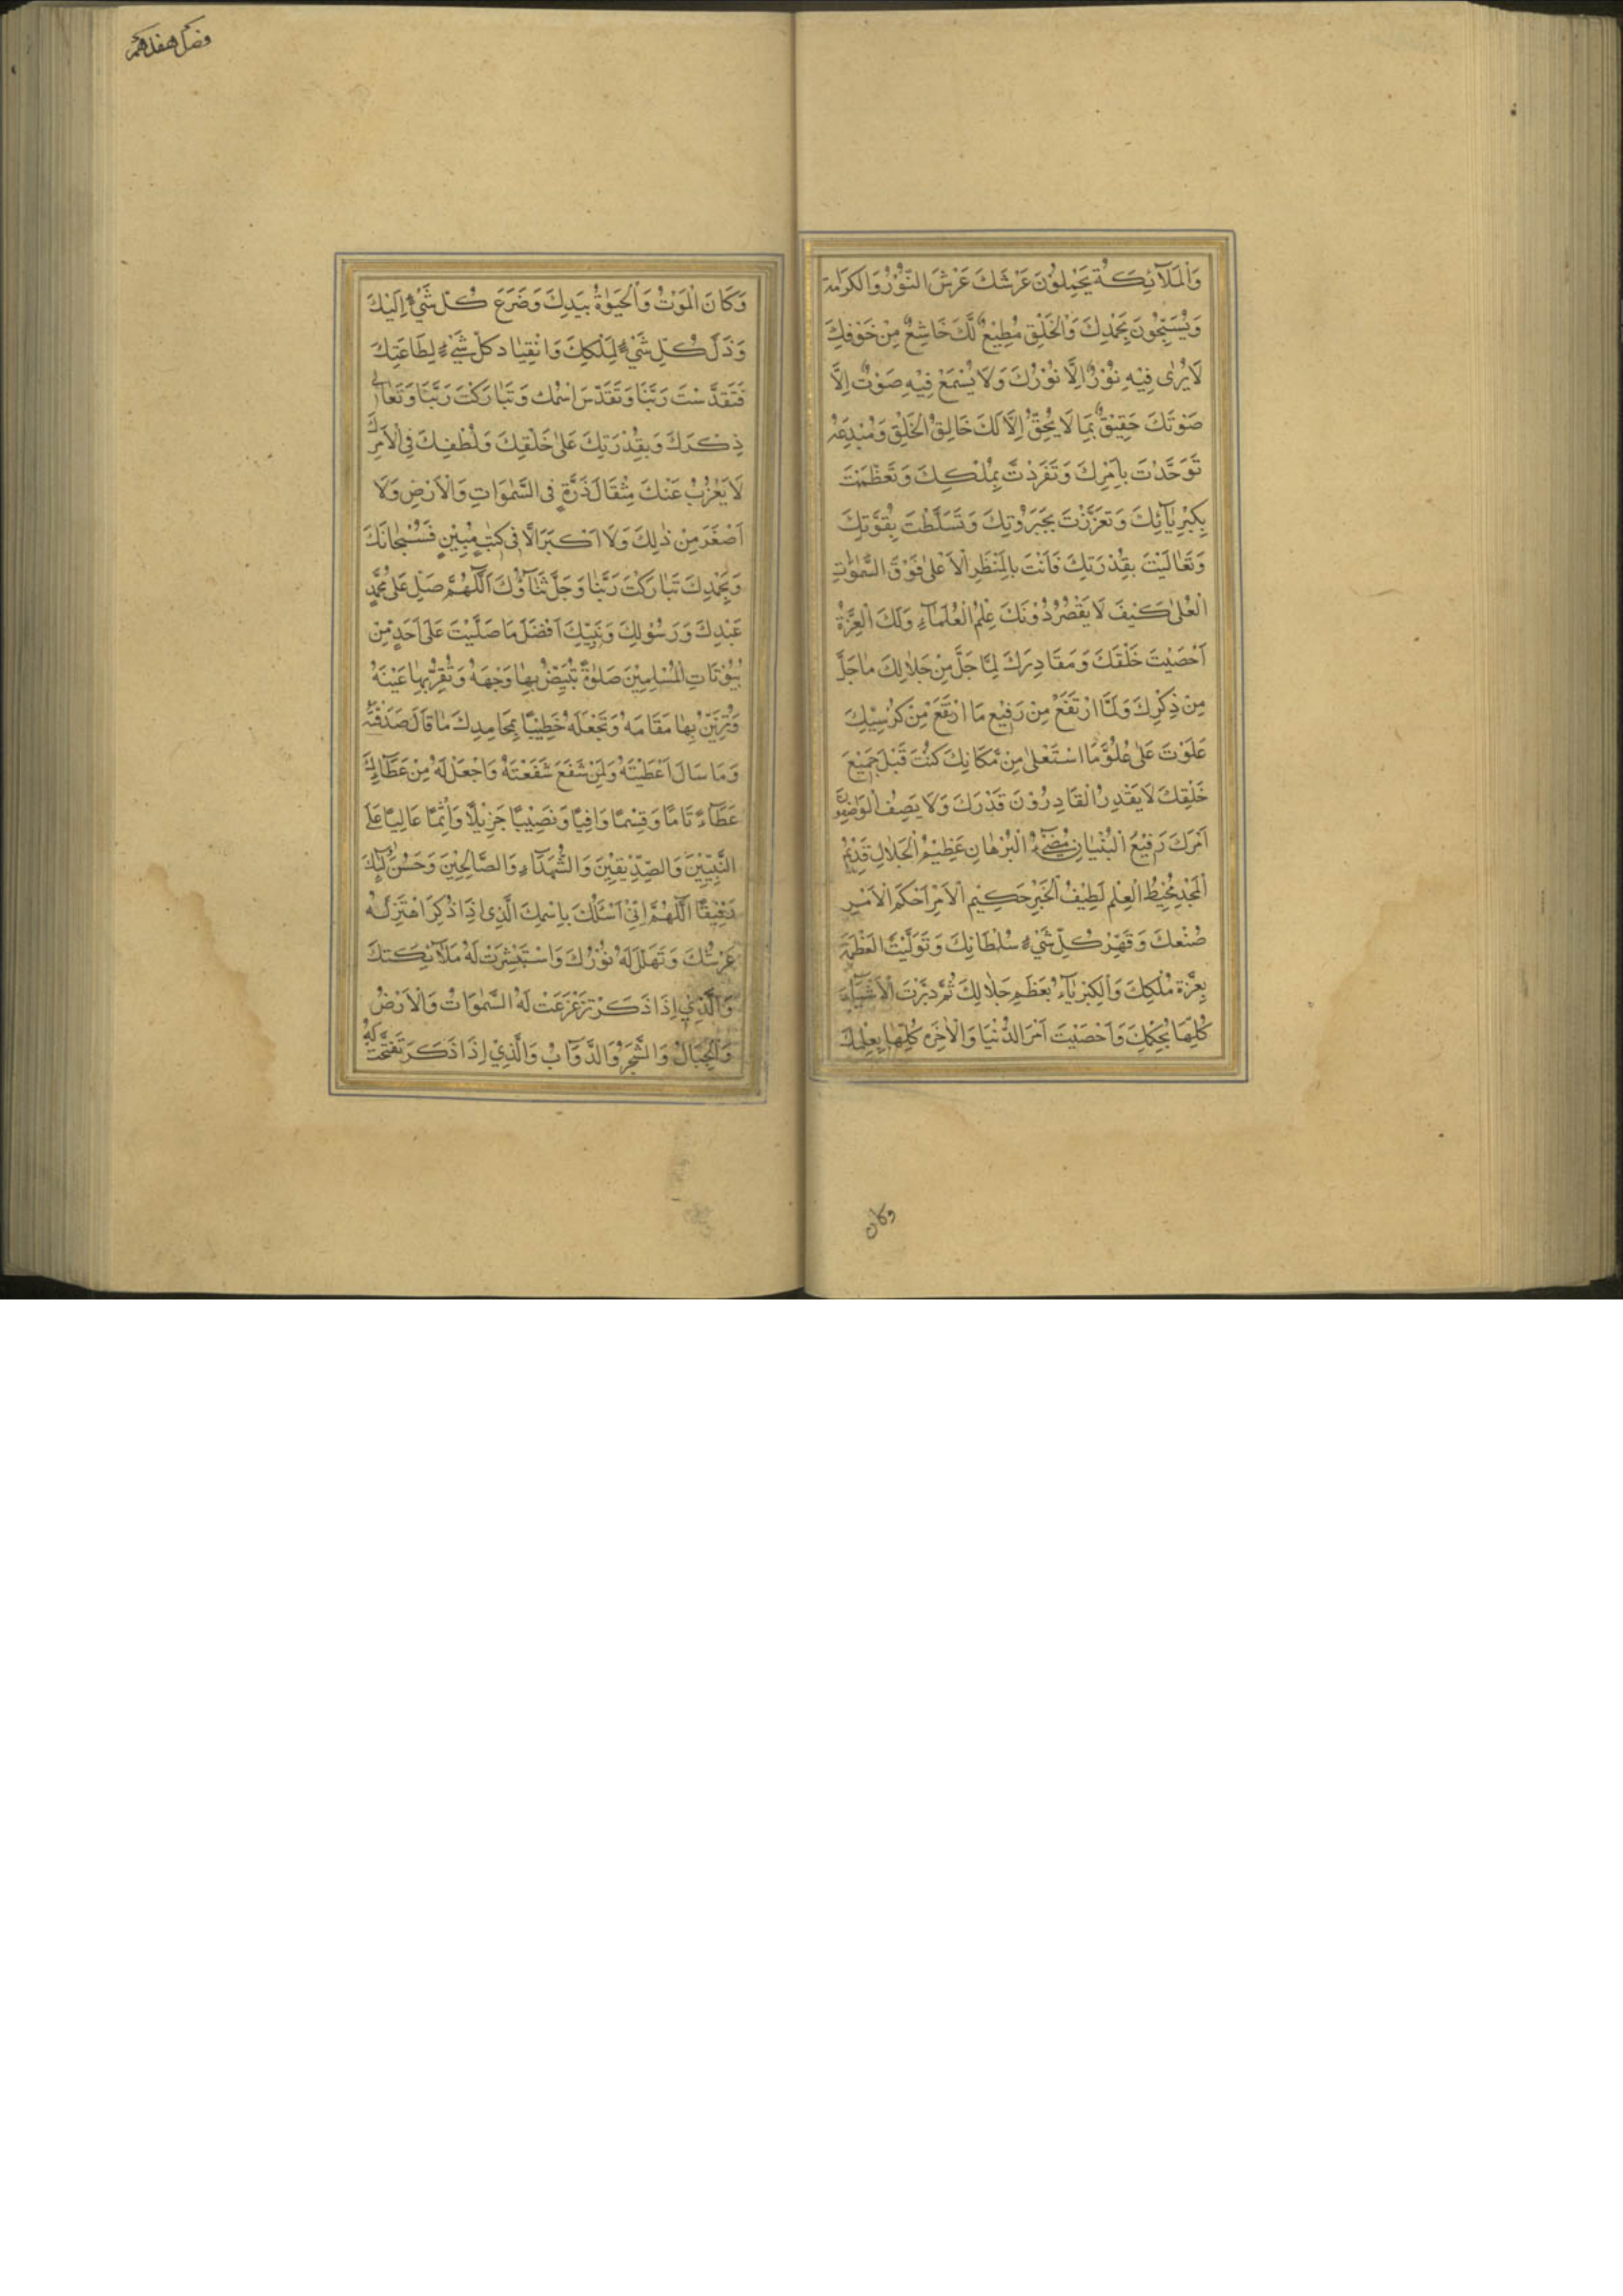 وَالْمَلَآئِكَةُ يَحْمِلُوْنَ عَرْشَكَ عَرْشَ النُّوْرُ وَالْكَرَامَة
وَيُسَبِّحُوْنَ بِحَمْدِكَ وَالْخَلْقِ مُطِيْعٌ لَكَ خَاشِعٌ مِنْ خَوْفِكَ
لَا يُرٰى فِيْهِ نُوْرٌ اِلَّا نُوْرُكَ وَلَا يُسْمَعُ فِيْهِ صَوْتٌ اِلَّا
صَوْتَكَ حَقِيْقٌ بِمَا لَا يُحِقُّ اِلَّا لَكَ خَالِقُ الْخَلْقِ وَمُبْدِعُهُ
تَوَحَّدْتَ بِاَمْرِكَ وَتَفَرَدْتَ بِمُلْكِكَ وَتَعَظَّمْتَ
بِكِبْرِيَآئِكَ وَتَعَزَّزْتَ بِجَبَرُوْتِكَ وَتَسَلَّطْتَ بِقُوَّتِكَ
وَتَعَالَيْتَ بِقُدْرَتِكَ فَاَنْتَ بِالْمَنْظَرِ الْاَعْلٰى فَوْقَ السَّمٰوٰتِ
الْعُلٰى كَيْفَ لَا يَقْصُرُ دُوْنَكَ عِلْمُ الْعُلَمَآءِ وَلَكَ الْعِزَّةُ
اَحْصَيْتَ خَلْقَكَ وَمَقَادِرَكَ لِمَا جَلَّ مِنْ جَلَالِكَ مَا جَلَّ
مِنْ ذِكْرِكَ وَلَمَّا ارْتَفَعَ مِنْ رَفِيْعِ مَا ارْتَفَعَ مِنْ كُرْسِيِّكَ
عَلَوْتَ عَلٰى عُلُوِّ مَا اسْتَعْلٰى مِنْ مَكَانِكَ كُنْتَ قَبْلَ جَمِيْعَ
خَلْقِكَ لَا يَقْدِرُ الْقَادِرُوْنَ قَدْرَكَ وَلَا يَصِفُ الْوَاصِفُوْنَ
اَمْرَكَ رَفِيْعَ الْبُنْيَانِ مُضِيْءُ الْبُرْهَانِ عَظِيْمُ الْجَلَالِ قَدِيْمُ
الْمَجْدِ مُحِيْطُ الْعِلْمِ لَطِيْفُ الْخَبْرِ حَكِيْمِ الْاَمْرِ اَحْكَمَ الْاَمْرِ
صُنْعَكَ وَقَهَرَ كُلِّ شَيْءٍ سُلْطَانِكَ وَتَوَلَّيْتَ الْعَظْمَةَ
بِعِزَّةِ مُلْكِكَ وَالْكِبْرِيَآءُ بِعَظْمِ جَلَالِكَ ثُمَّ دَبَّرْتَ الْاَشْيَآءَ
كُلِّهَا بِحُكْمِكَ وَاَحْصَيْتَ اَمْرَ الدُّنْيَا وَالْاٰخِرَه كُلِّهَا بِعِلْمِكَ
وكان
فصل هفدهم
وَكَانَ الْمَوْتُ وَالْحَيٰوةُ بِيَدِكَ وَضَرَعَ كُلّ شَيْءٍ اِلَيْكَ
وَذَلَّ كُلِّ شَيْءٍ لِمُلْكِكَ وَانْقِيَاد كُلّ شَيْءٍ لِطَاعَتِكَ
فَتَقَدَّسْتَ رَبَّنَا وَتَقَدَّسَ اسْمُك وَتَبَارَكْتَ رَبَّنَا وَتَعَالٰى
ذِكْرَكَ وَبِقُدْرَتِكَ عَلٰى خَلْقِكَ وَلُطْفِكَ فِي الْاَمْرِكَ
لَا يَعْزُبُ عَنْكَ مِثْقَالَ ذَرَّةٍ فِى السَّمٰوَاتِ وَالْاَرْضِ وَلَا
اَصْغَرَ مِنْ ذٰلِكَ وَلَا اَكْبَرَ اِلَّا فِى كِتٰبٍ مُبِيْنٍ فَسُبْحَانَكَ
وَبِحَمْدِكَ تَبَارَكْتَ رَبَّنَا وَجَلَّ ثَنَآؤُكَ اَللّٰهُمَّ صَلِّ عَلٰى مُحَمَّدٍ
عَبْدِكَ وَرَسُوْلِكَ وَنَبِيِّكَ اَفْضَلَ مَا صَلَّيْتَ عَلٰى اَحَدٍ مِنْ
بُيُوْتَاتِ الْمُسْلِمِيْنَ صَلٰوةً تُبَيِّضُ بِهَا وَجْهَهُ وَتُقِرُّ بِهَا عَيْنَهُ
وَتُزَيِّنُ بِهَا مَقَامَهُ وَتَجْعَلَهُ خَطِيْبًا بِمَحَامِدِكَ مَا قَالَ صَدَقْتَهُ
وَمَا سَالَ اَعْطَيْتَهُ وَلِمَنْ شَفَعَ شَفَعْتَهُ وَاجْعَلْ لَهُ مِنْ عَطَآئِكَ
عَطَآءً تَامًا وَقِسْمًا وَافِيًا وَنَصِيْبًا جَزِيْلًا وَاِسْمًا عَالِيًا عَلَى
النَّبِيِّيْنَ وَالصِّدِّيْقِيْنَ وَالشُّهَدَآءِ وَالصَّالِحِيْنَ وَحَسُنَ اُولٰٓئِكَ
رَفِيْقًا اَللّٰهُمَّ اِنِّيْ اَسْئَلُكَ بِاسْمِكَ الَّذِي اِذَا ذُكِرَ اهْتَزَّ لَهُ
عَرْشُكَ وَتَهَلَّلَ لَهُ نُوْرُكَ وَاسْتَبْشَرَتْ لَهُ مَلَآئِكَتِكَ
وَالَّذِيْ اِذَا ذَكَرَ تَزَعْزَعَتْ لَهُ السَّمٰوَاتُ وَالْاَرْضُ
وَالْجِبَالُ وَالشَّجَرُ وَالدَّوَآبُ وَالَّذِيْ اِذَا ذَكَرَ تَفَتَّحَتْ لَهُ